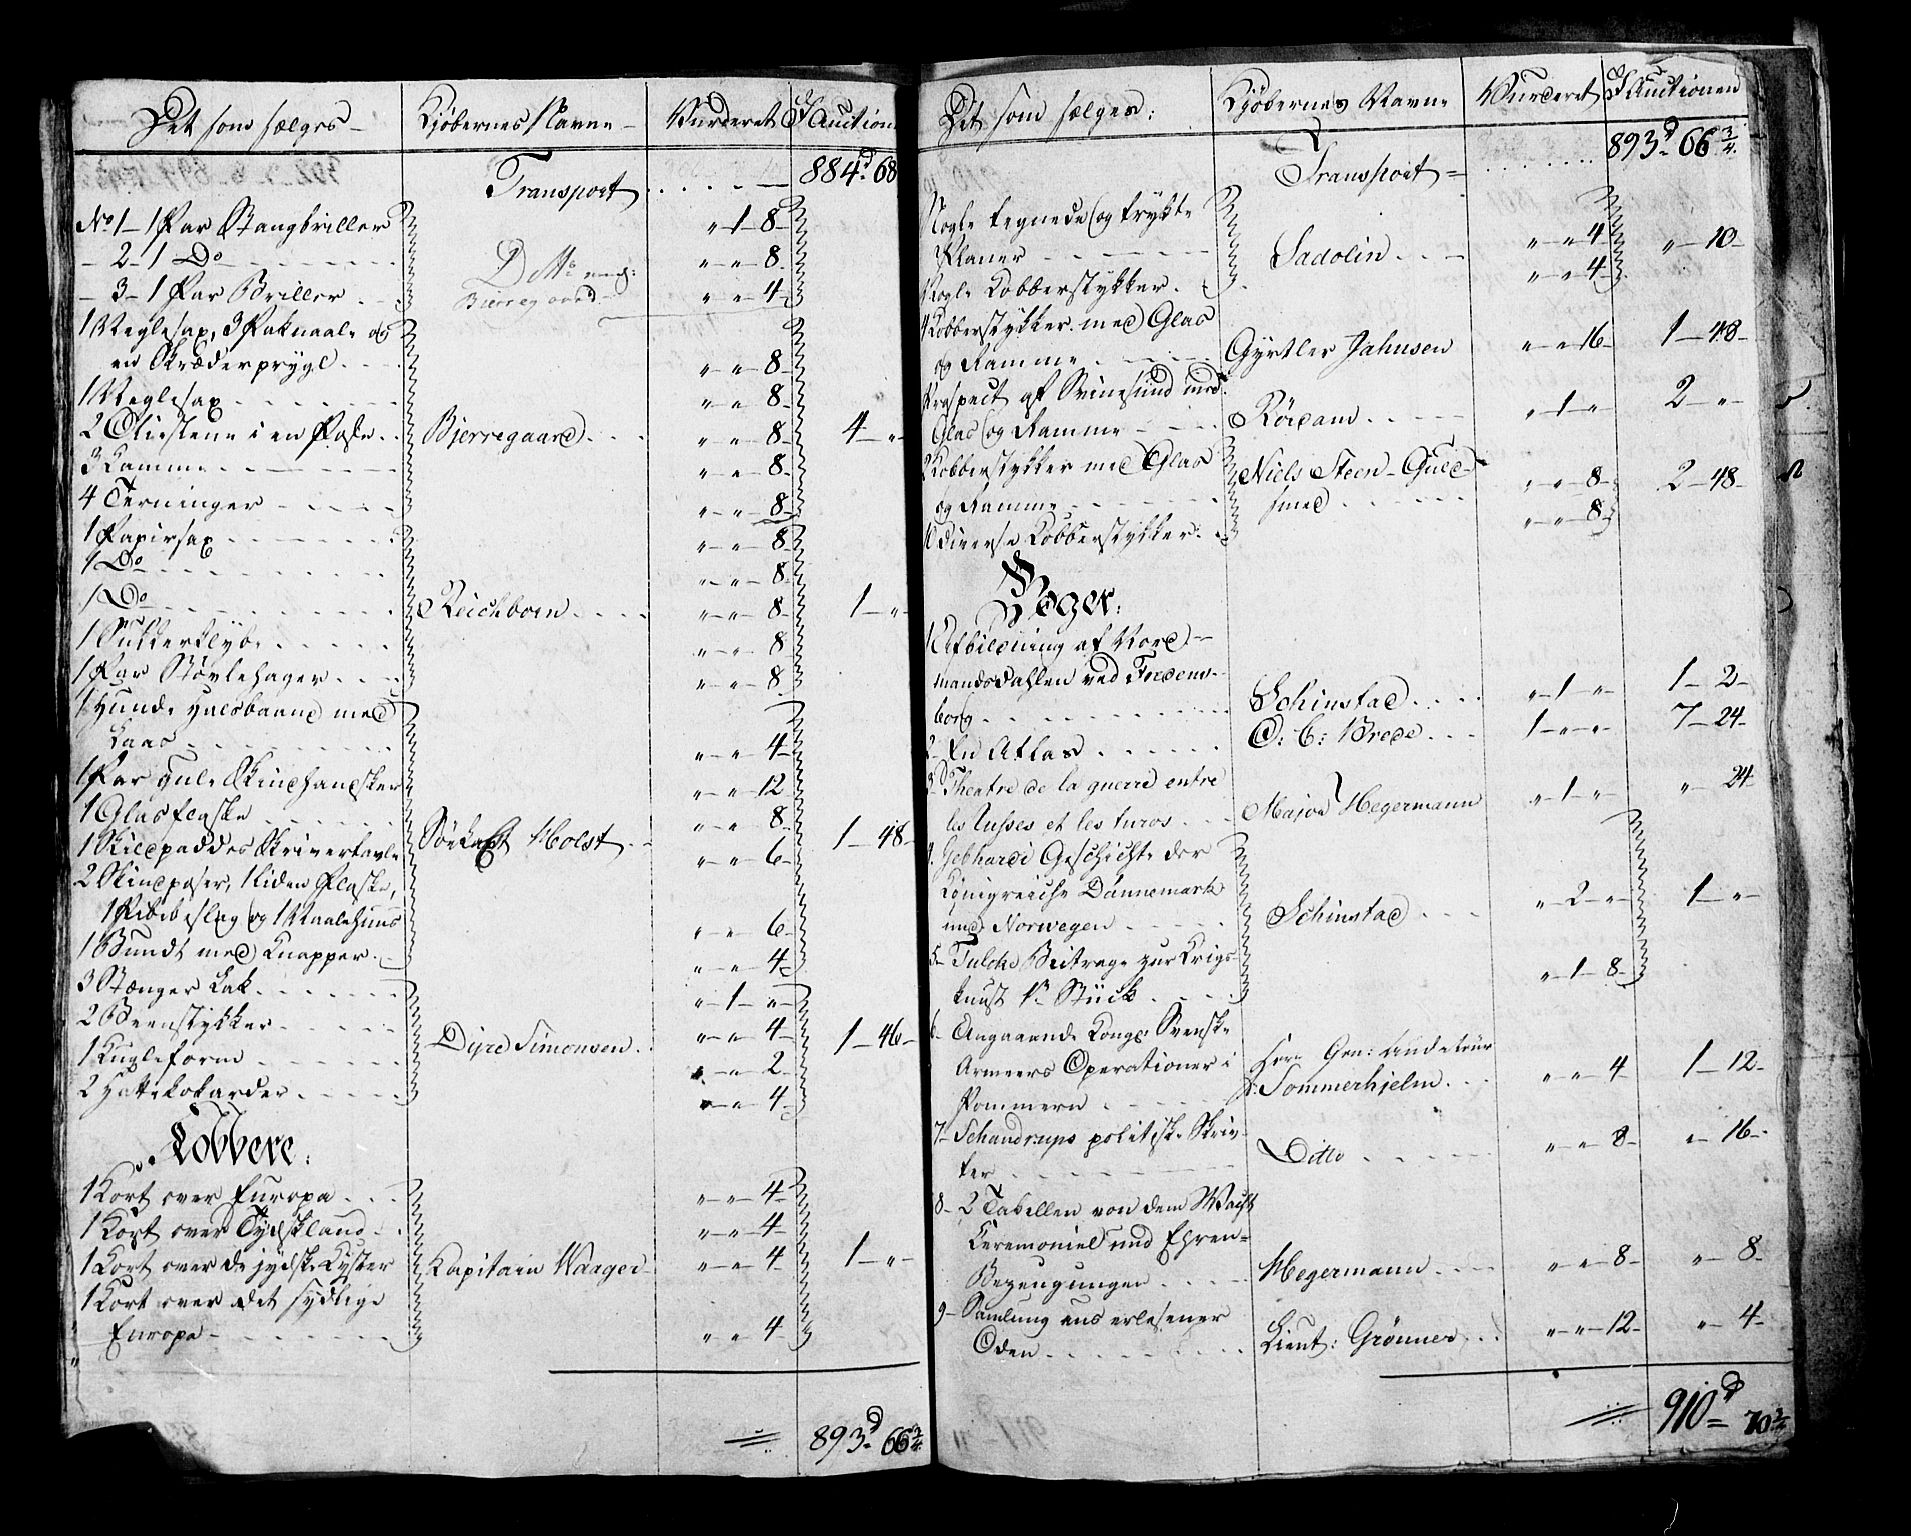 Det som sælges Kjøbernes Navne Vurderet Auction
Transport 884d 68
No 1 1 Par Stangbriller „ 1 8
2 1 Do „ „ 8
3 1 Par Briller Bierregaard „ „ 4
1 Neglesax, 3 Paknaale og
en Skræderprygl „ „ 8
1 Neglesax „ „ 8
2 Oliestene i en Poske Bjerregaard „ „ 8 4 „
3 Kamme „ „ 8
4 Terninger „ „ 8
1 Papirsax „ „ 8
1 Do „ „ 8
1 Do Reichborn „ „ 8 1 „
1 Sukkerklybe „ „ 8
1 Par Støvlehager „ „ 8
1 Hunde Halsbaand med
Laas „ „ 4
1 Par gule Skindhandsker „ „ 12
1 Glasflaske „ „ 8
1 Skildpaddes Skrivertavle Søekapt Holst „ „ 6 1 48
2 Skindposer, 1 liden Flaske,
1 Pibebeslag og 1 Naalehuus „ „ 6
1 Bundt med Knapper „ „ 4
3 Stænger Lak „ 1 „
2 Beenstykker Dyre Simonsen „ „ 4 1 46
1 Kugleform „ „ 2
2 Hattekokarder „ „ 4
Kobbere:
1 Kort over Europa „ „ 4
1 Kort over Tydskland „ „ 4
1 Kort over de jydske Kyster Kapitain Waager „ „ 4 1 „
1 Kort over det sydlige
Europa „ „ 4
893d 66 3/4
Det som sælges: Kjøbernes Navne Vurderet Auctionen
Transport 893d 66 3/4
Nogle tegnede og trykte
Planer Sadolin „ „ 4 „ 10
Nogle Kobberstykker „ „ 4
4 Kobberstykker med Glas
og Ramme Gyrtler Jahnsen „ „ 16 1 48
Prospect af Svinesund med
Glas og Ramme Rördam „ 1 „ 2 „
2 Kobberstykker med Glas Niels Steen Guld-
og Ramme smed „ „ 8 2 48
10 diverse Kobberstykker „ „ 8
Bøger:
1 Afbildning af Nord-
mandsdahlen ved Fredens-
borg Schinstad „ 1 „ 1 2
2 En Atlas C: C: Brede 1 „ „ 7 24
3 Theatre de la guerre entre
les Russes et les turcs Major Hegermann „ 1 „ „ 24
4 Gebhardi Geschichte der
Königreiche Dännemark
und Norwegen Schinstad „ 2 „ 1 „
5 Beitrage zur Krigs-
kunst Stück „ 1 8
6 Angaaende Kongl: Svenske
Armeers Operationer i
Pommern Sommerhjelm „ „ 4 1 12
7 Schandrups politiske Skriv-
ter Ditto „ „ 8 „ 16
8 2 Tabellen von dem Wacht
Ceremoniel und Ehren-
Bezeugungen Hegermann „ „ 8 „ 8
9 Samlung aus erlesener
Oden Lieut: Grønner „ „ 12 „ 4
910d 70 3/4